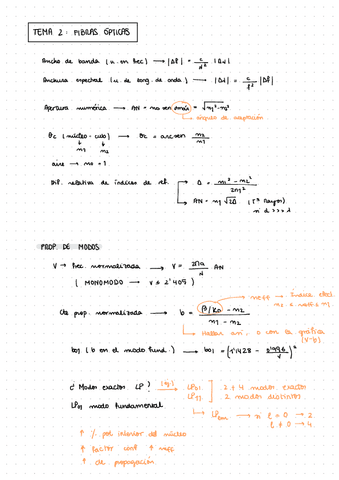 TEMA 2: FIBRAS ÓPTICAS
Ancho de banda (u. en frec) → |Δf| = c/λ² |Δλ|
Anchura espectral (u. de long. de onda) → |Δλ| = c/f² |Δf|
Apertura numérica → AN = no sen θmáx = √n1²-n2²
→ ángulo de captación
θc (núcleo-cubi) → θc = arcsen n2/n1
n1 n2
aire → no = 1
Dif. relativa de índices de ref. → Δ = n1² - n2² / 2n1²
→ AN = n1 √2Δ
n d >>> λ
PROP. DE MODOS
V → frec. normalizada → V = 2πa/λ AN
( MONOMODO → V ≤ 2'405 )
Cte prop. normalizada → b = β/ko - n2 / n1 - n2
neff → índice efect.
n2 < neff < n1
→ Hallar am. b con la gráfica
(V-b)
b01 ( b en el modo fund. ) → b01 = (1'1428 - 0'996/V)²
¿ Modos exactos LP ? Ej: LP01 LP11 ] 2 + 4 modos exactos
2 modos distintos
LP01 modo fundamental
→ LPlm → si l = 0 → 2
l ≠ 0 → 4
↑ % pot interior del núcleo
↑ factor conf ↑ neff
↑ cte propagación